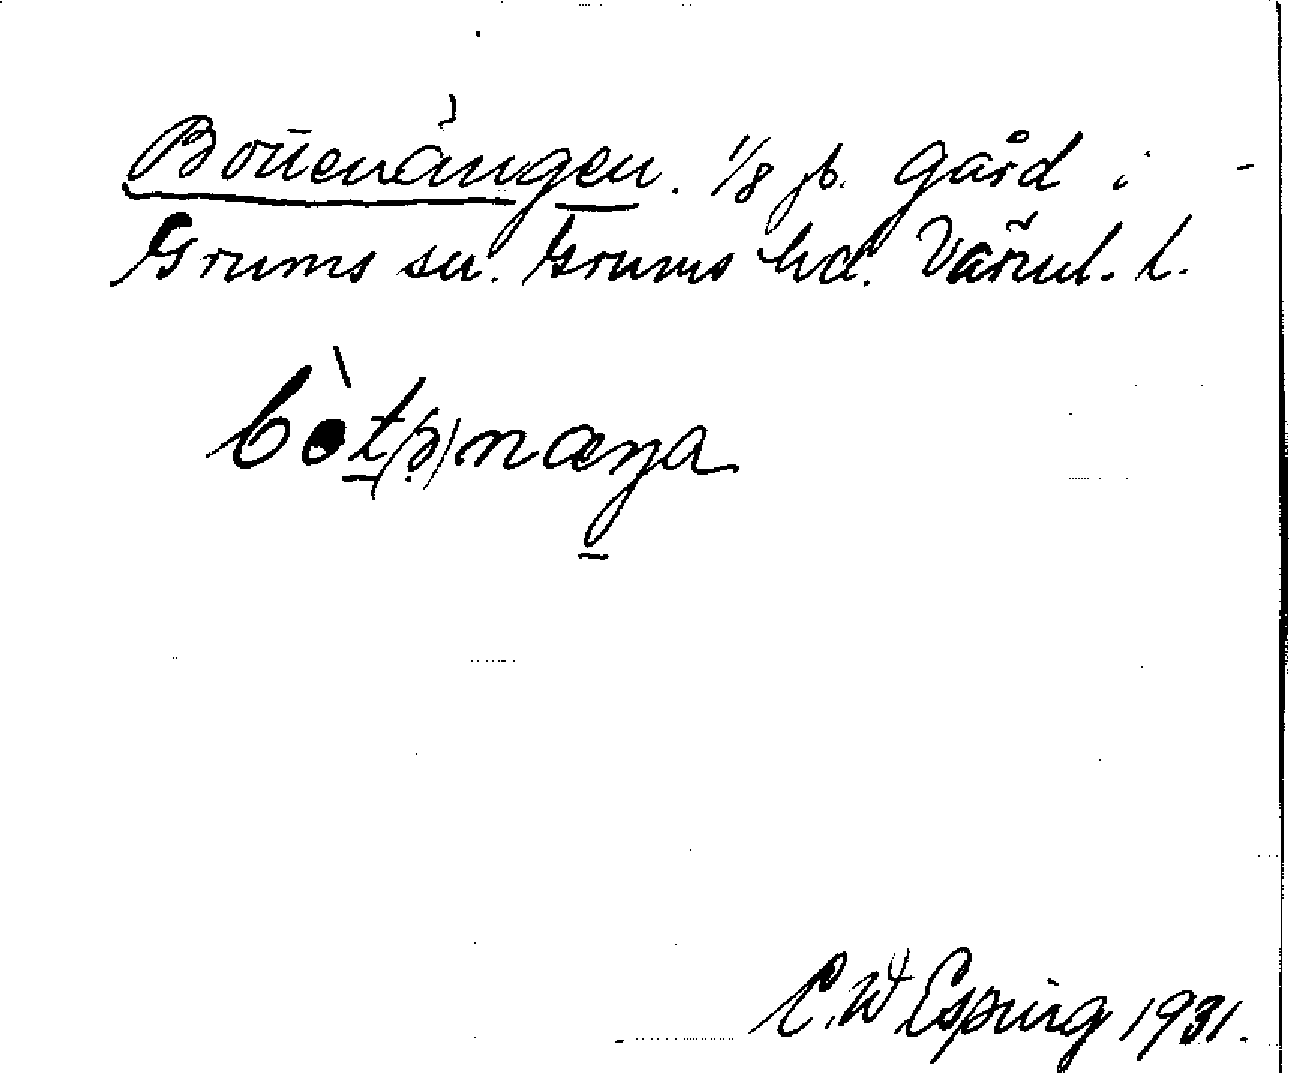 Bottenängen. 1/8 jb. Gård i
Grums sn. Grums hd. Värml. l.
bòt(ə)næŋa
C. W Esping 1931.